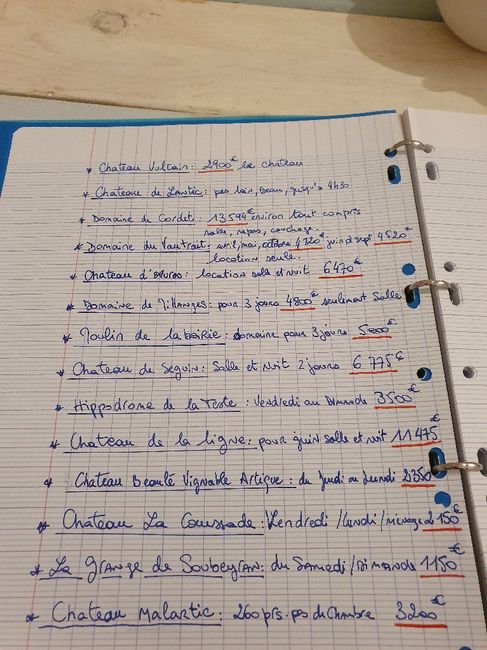 * Chateau Vulcain : 2900€ le chateau
* Chateau de Lantic : pas loin, beau, jusqu'à 4h30
* Domaine de Cordet : 13544€ environ tout compris
salle, repas, couchage.
* Domaine du Vautrait : avril, mai, octobre 4320€ juin à sept 4520€
location seule.
* Chateau d' : location salle et nuit 6470€
* Domaine de Tillanges : pour 3 jours 4800€ seulement Salle
* Moulin de la boirie : domaine pour 3 jours 5000€
* Chateau de Seguin : Salle et Nuit 2 jours 6 775€
* Hippodrome de la Teste : Vendredi au Dimande 3500€
* Chateau de la ligne : pour juin salle et nuit 11 475€
* Chateau Beauté Vignable Artique : du Jeudi au Lundi 2350€
* Chateau La Coussade : Vendredi / lundi / ménage 2 150€
* La grange de Soubeyran : du Samedi / Dimande 1150€
* Chateau Malartic : 260 prs. pas de chambre 3200€